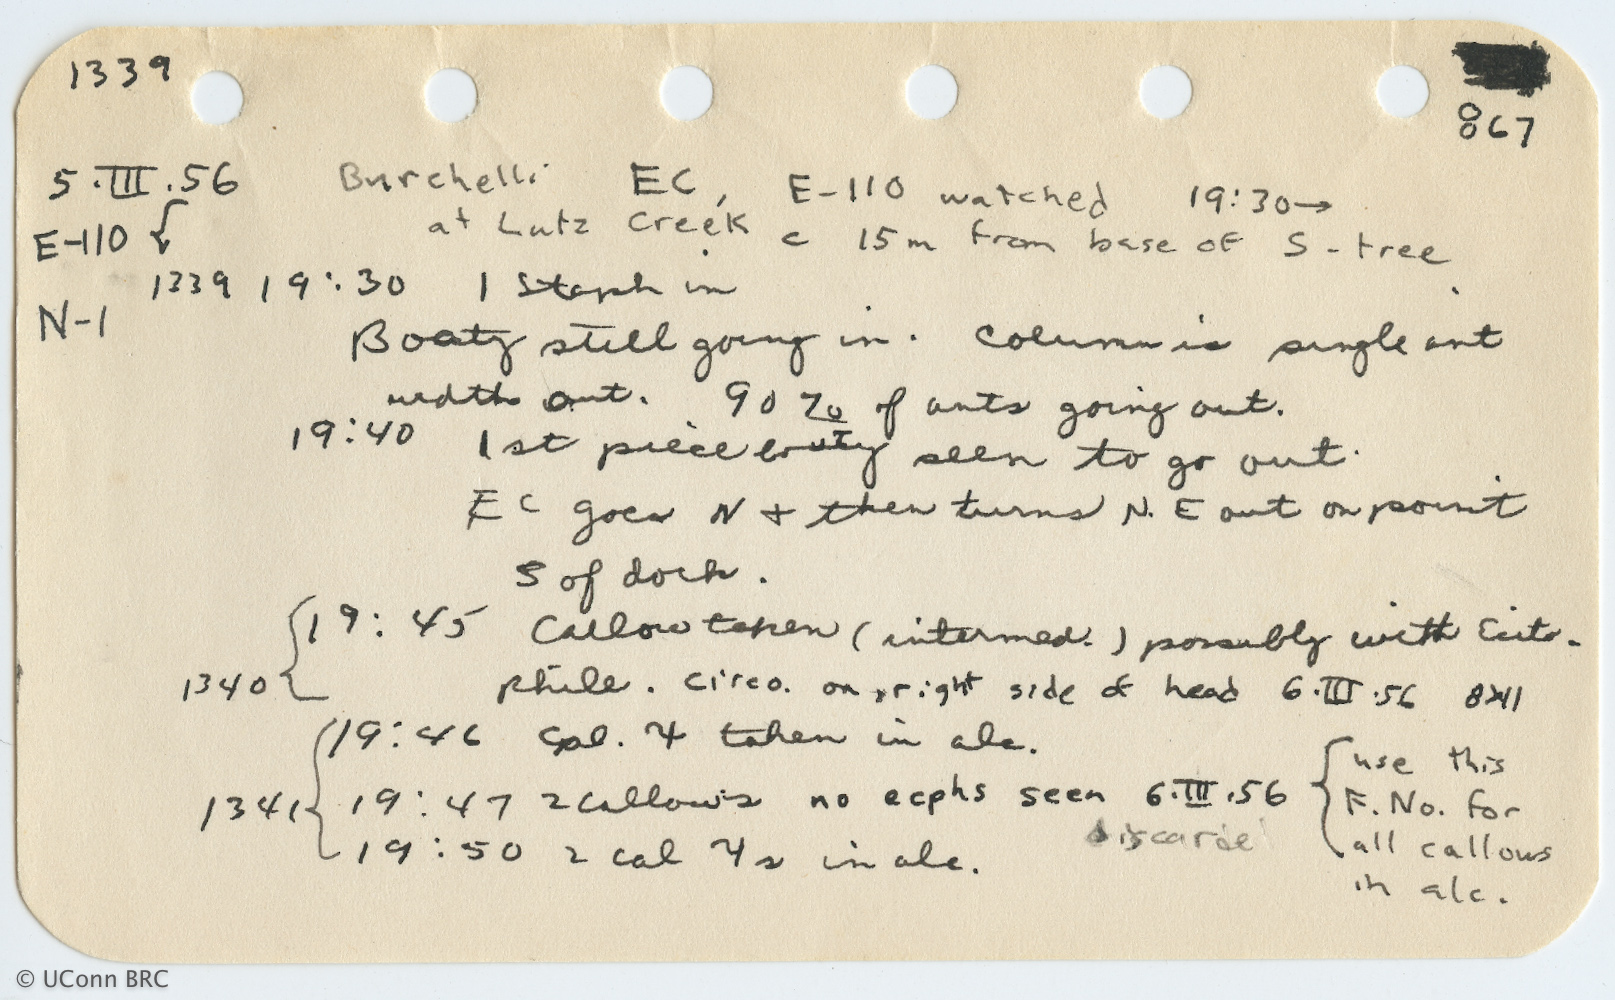 1339
867
5.III.56 Burchelli EC, E-110 watched 19:30→
E-110 at Lutz Creek c 15m from base of S-tree.
1339 19:30 1 Staph in
N-1
Booty still going in. Column is single ant
width out. 90% of ants going out.
19:40 1st piece booty seen to go out.
EC goes N + then turns N.E out on point
S of dock.
1340 { 19:45 Callow taken (intermed.) possibly with Ecito-
phile. Circo. on right side of head 6.III.56
19:46 Cal. taken in alc.
1341 { 19:47 2 callows no ecphs seen 6.III.56
discarded
19:50 2 cal in alc.
{ use this
F. No. for
all callows
in alc.
© UConn BRC